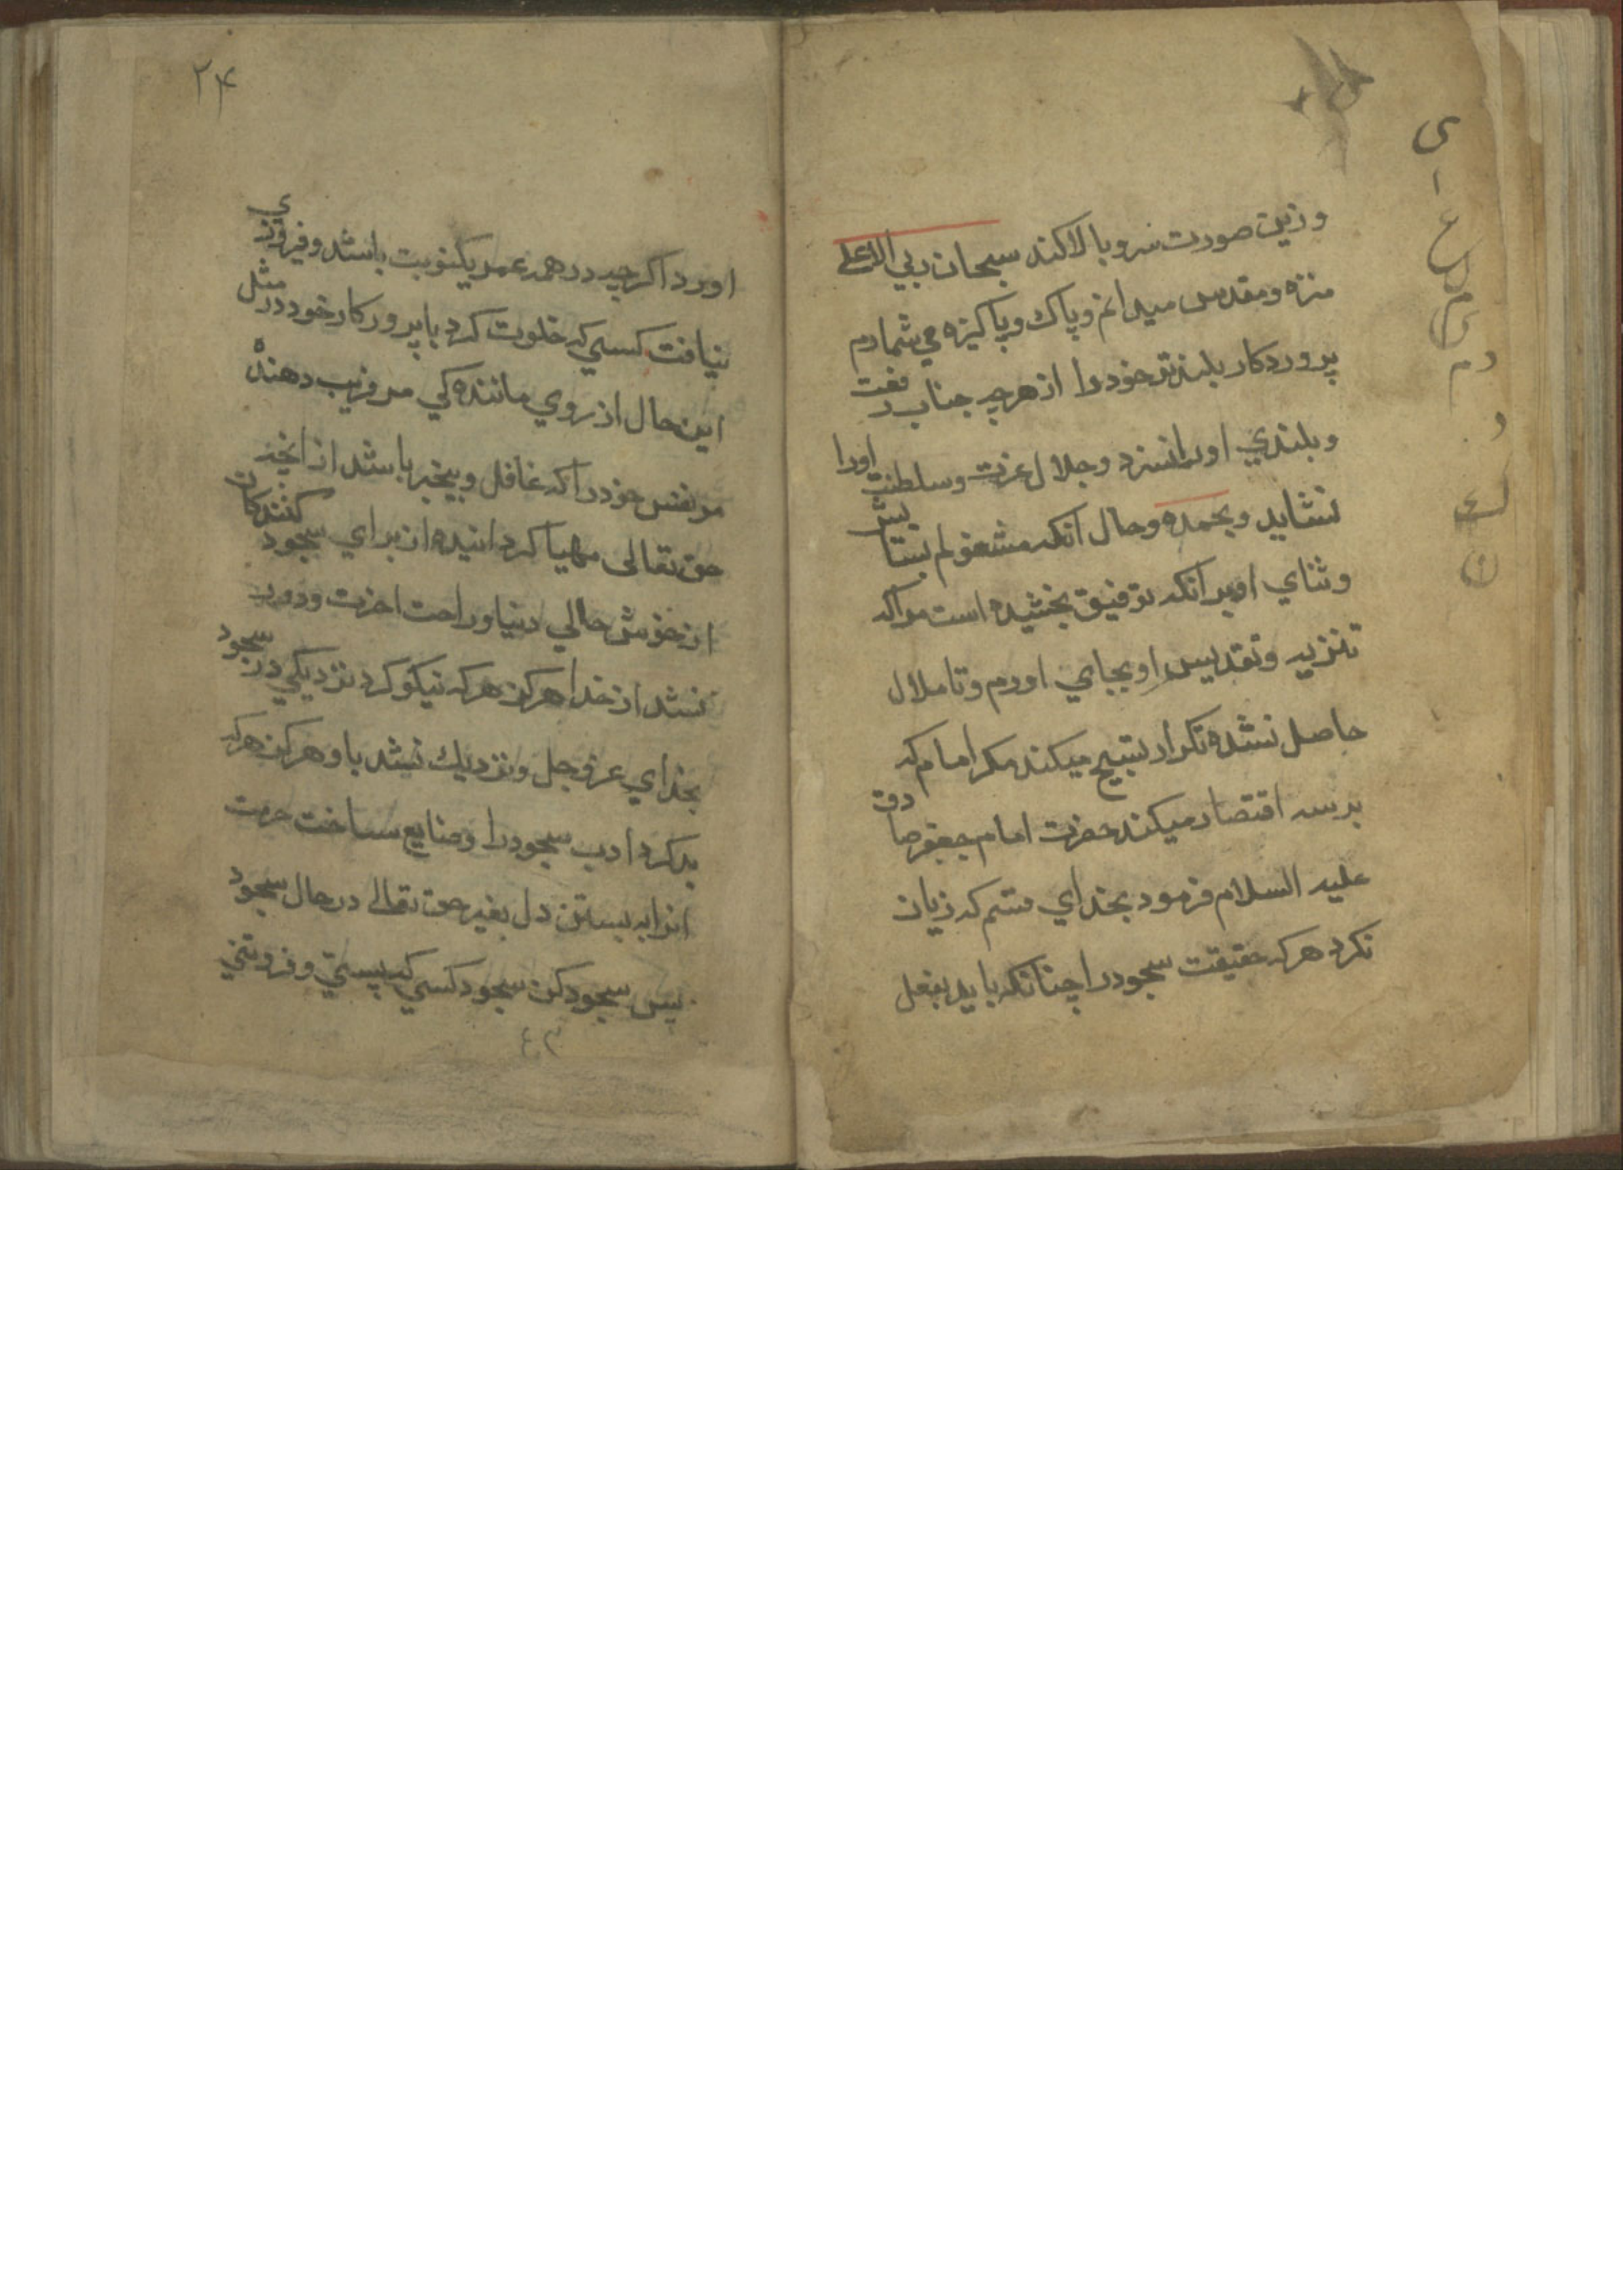 و زین صورت سر و بالا کند سبحان ربي الاعلى
منزه و مقدس میدانم و پاك و پاکیزه مي شمارم
پروردکار بلندتر خود را از هرچه جناب رفعت
و بلندي او را نسزد و جلال عزت و سلطنت او را
نشاید و بحمده و حال آنکه مشغولم بستایش
و ثناي او برانکه توفیق بخشیده است مرا که
تنزیه و تقدیس او بجاي اورم و تا ملال
حاصل نشده تکرار تسبیح میکند مکر امام که
بر سه اقتصار میکند حضرت امام جعفر صادق
علیه السلام فرمود بخداي قسم که زیان
نکرد هرکه حقیقت سجود را چنانکه باید بفعل
۲۴
اورد اکرچه در همه عمر یکنوبت باشد و فیروزي
نیافت کسي که خلوت کرد با پرورکار خود در مثل
این حال از روي مانندکي مر فریب دهنده
مر نفس خود را که غافل و بیخبر باشد از انچه
حق تعالى مهیا کردانیده از براي سجود کنندکان
از خوش حالي دنیا و راحت اخرت و دور
نشد از خدا هرکز هرکه نیکو کرد نزدیکي در سجود
بخداي عز و جل و نزدیك نشد باو هرکز هرکه
بد کرد ادب سجود را و ضایع ساخت حرمت
انرا به بستن دل بغیر حق تعالى در حال سجود
پس سجود کن سجود کسي که پستي و فروتني